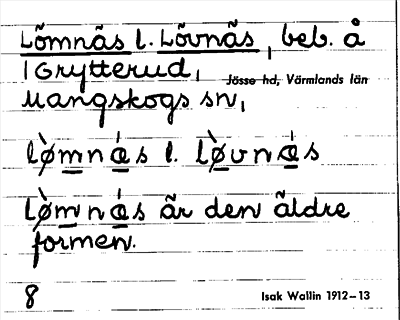 Lömnäs l. Lövnäs, beb. å
1 Grytterud,
Jösse hd, Värmlands län
Mangskogs sn,
lø̀mnǽs l. lø̀vnǽs
lø̀mnǽs är den äldre
formen.
8
Isak Wallin 1912–13